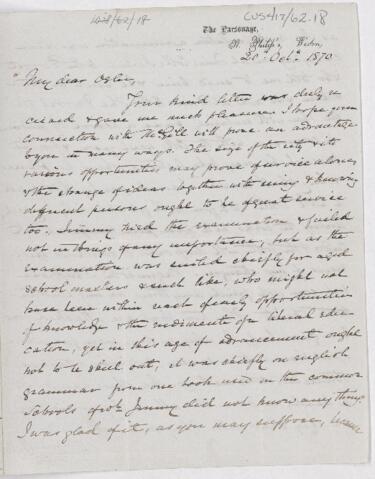 CUS417/62.18
The Parsonage,
St. Philip's, Weston,
20 Oct. 1870
My dear Osler,
Your kind letter was duly re
ceived & gave me much pleasure. I hope your
connection with McGill will prove an advantage
to you in many ways. The size of the city & its
various opportunities may prove of service alone,
& the change of ideas together with seeing & knowing
different persons ought to be of great service
too. Jimmy tried the examination & failed
not in things of any importance, but as the
examination was suited chiefly for aged
school masters & such like, who might not
have been within reach of early opportunities
of knowledge & the rudiments of a liberal edu
cation, yet in this age of advancement ought
not to be shut out, it was chiefly on english
grammar from one book used in the common
Schools of wh. Jimmy did not know anything.
I was glad of it, as you may suppose, because